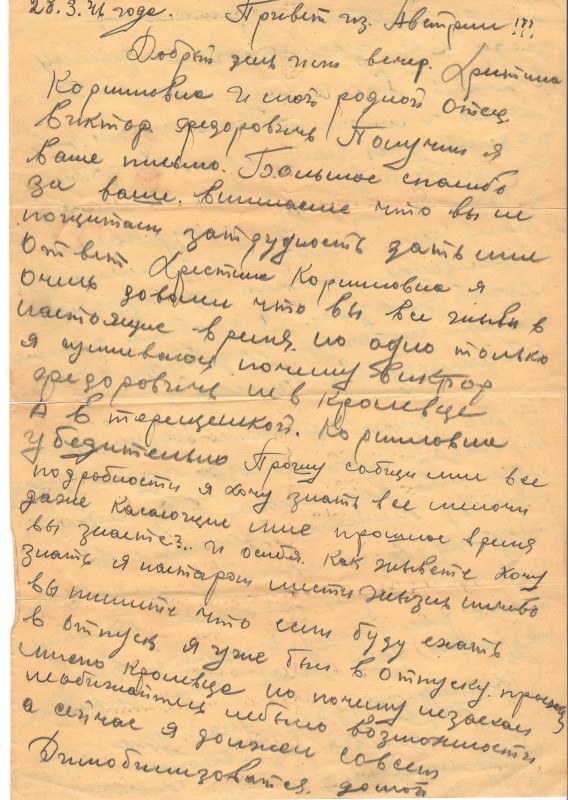 28.3.46 годе. Привет из. Австрии!!!
Добрый день или вечер. Христина
Корниловна И мой родной Отец.
Виктор. Федоровичь Получил я
Ваше письмо. Большое спасибо
за ваше. внимание что вы не
пощитали затдудность дать мне
Ответ. Христина Корниловна я
очень доволен что вы все живы в
настоящие время. но одно только
я почему Виктор
Федоровичь не в Кролевце
А в терещенской. Корниловна
убедительно Прошу собщи мне все
подробности я хочу знать все мелочи
даже Касающие мне прошлое время
вы знаете?.. И особ. Как живете Хочу
знать я жизни
вы пишите что если буду ехать
в отпуск я уже был в Отпуску.
мимо Кролевца но почему незаехал
необижайтеся небыло возможности
а сейчас я должен совсем
Димобилизоватся. домой